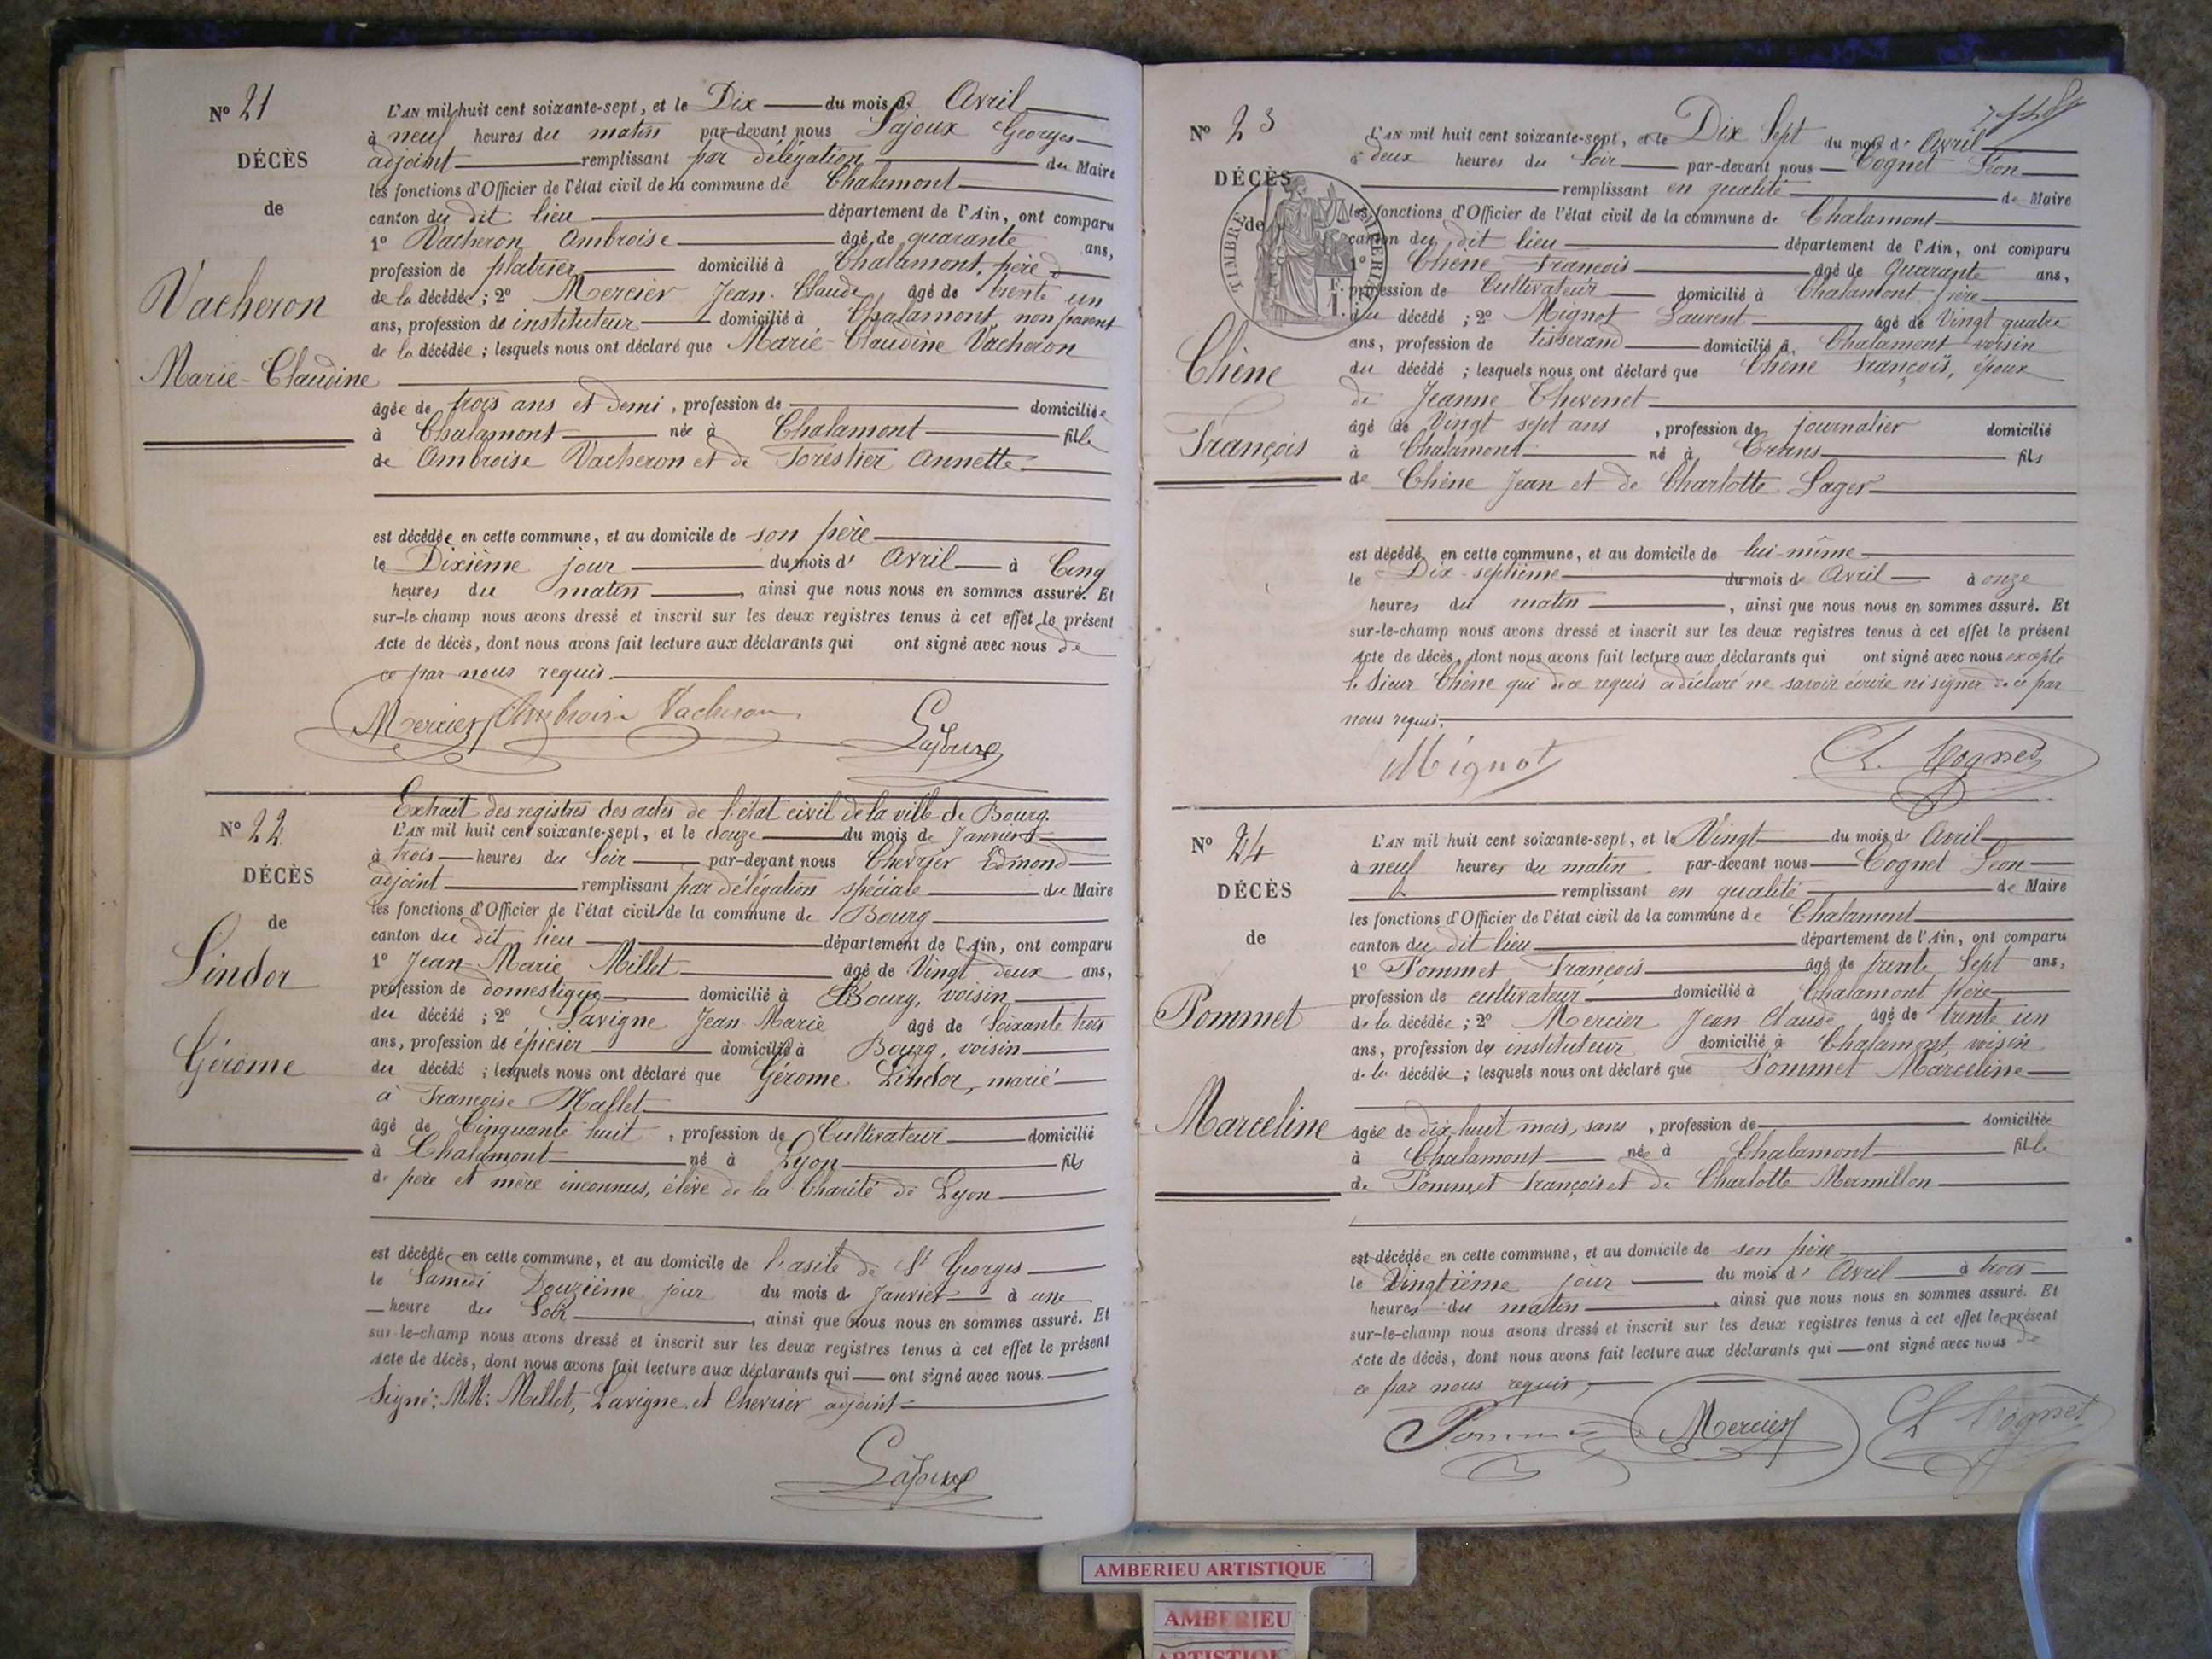 N° 21
DÉCÈS
de
Vacheron
Marie-Claudine
L'AN mil huit cent soixante-sept, et le Dix du mois d' Avril
à neuf heures du matin par-devant nous Lajoux Georges
adjoint remplissant par délégation du Maire
les fonctions d'Officier de l'état civil de la commune de Chalamont
canton du dit lieu département de l'Ain, ont comparu
1° Vacheron Ambroise âgé de quarante ans,
profession de platrier domicilié à Chalamont, père
de la décédée ; 2° Mercier Jean-Claude âgé de trente un
ans, profession de instituteur domicilié à Chalamont non parent
de la décédée ; lesquels nous ont déclaré que Marie-Claudine Vacheron
âgée de trois ans et demi, profession de domiciliée
à Chalamont née à Chalamont fille
de Ambroise Vacheron et de Forestier Annette
est décédée en cette commune, et au domicile de son père
le Dixième jour du mois d' Avril à Cinq
heures du matin, ainsi que nous nous en sommes assuré. Et
sur-le-champ nous avons dressé et inscrit sur les deux registres tenus à cet effet le présent
Acte de décès, dont nous avons fait lecture aux déclarants qui ont signé avec nous de
ce par nous requis.
Mercier Ambroise Vacheron Lajoux
N° 22
DÉCÈS
de
Lindor
Gérome
Extrait des registres des actes de l'état civil de la ville de Bourg.
L'AN mil huit cent soixante-sept, et le douze du mois de Janvier
à trois heures du Soir par-devant nous Chevrier Edmond
adjoint remplissant par délégation spéciale du Maire
les fonctions d'Officier de l'état civil de la commune de Bourg
canton du dit lieu département de l'Ain, ont comparu
1° Jean-Marie Millet âgé de Vingt deux ans,
profession de domestique domicilié à Bourg, voisin
du décédé ; 2° Lavigne Jean-Marie âgé de Soixante trois
ans, profession de épicier domicilié à Bourg, voisin
du décédé ; lesquels nous ont déclaré que Gérome Lindor, marié
à Françoise Mallet
âgé de Cinquante huit, profession de Cultivateur domicilié
à Chalamont né à Lyon fils
de père et mère inconnus, élève de la Charité de Lyon
est décédé en cette commune, et au domicile de l'asile de St Georges
le Samedi Douzième jour du mois de Janvier à une
heure du Soir, ainsi que nous nous en sommes assuré. Et
sur-le-champ nous avons dressé et inscrit sur les deux registres tenus à cet effet le présent
Acte de décès, dont nous avons fait lecture aux déclarants qui ont signé avec nous.
Signé: MM: Millet, Lavigne et Chevrier adjoint
Lajoux
N° 23
DÉCÈS
de
TIMBRE IMPÉRIAL
Chêne
François
L'AN mil huit cent soixante-sept, et le Dix Sept du mois d' Avril
à deux heures du Soir par-devant nous Cognet Léon
remplissant en qualité de Maire
les fonctions d'Officier de l'état civil de la commune de Chalamont
canton du dit lieu département de l'Ain, ont comparu
1° Chêne François âgé de Quarante ans,
profession de Cultivateur domicilié à Chalamont frère
du décédé ; 2° Mignot Laurent âgé de Vingt quatre
ans, profession de tisserand domicilié à Chalamont voisin
du décédé ; lesquels nous ont déclaré que Chêne François, époux
de Jeanne Thevenet
âgé de Vingt sept ans, profession de journalier domicilié
à Chalamont né à Crans fils
de Chêne Jean et de Charlotte Lager
est décédé en cette commune, et au domicile de lui-même
le Dix-septième du mois de Avril à onze
heures du matin, ainsi que nous nous en sommes assuré. Et
sur-le-champ nous avons dressé et inscrit sur les deux registres tenus à cet effet le présent
Acte de décès, dont nous avons fait lecture aux déclarants qui ont signé avec nous excepté
le Sieur Chêne qui de ce requis a déclaré ne savoir écrire ni signer de ce par
nous requis.
Mignot Ch. Cognet
N° 24
DÉCÈS
de
Pommet
Marceline
L'AN mil huit cent soixante-sept, et le Vingt du mois d' Avril
à neuf heures du matin par-devant nous Cognet Léon
remplissant en qualité de Maire
les fonctions d'Officier de l'état civil de la commune de Chalamont
canton du dit lieu département de l'Ain, ont comparu
1° Pommet François âgé de trente Sept ans,
profession de cultivateur domicilié à Chalamont père
de la décédée ; 2° Mercier Jean-Claude âgé de trente un
ans, profession de instituteur domicilié à Chalamont voisin
de la décédée ; lesquels nous ont déclaré que Pommet Marceline
âgée de dix huit mois, sans, profession de domiciliée
à Chalamont née à Chalamont fille
de Pommet François et de Charlotte Mermillon
est décédée en cette commune, et au domicile de son père
le Vingtième jour du mois d' Avril à trois
heures du matin, ainsi que nous nous en sommes assuré. Et
sur-le-champ nous avons dressé et inscrit sur les deux registres tenus à cet effet le présent
Acte de décès, dont nous avons fait lecture aux déclarants qui ont signé avec nous de
ce par nous requis,
Pommet Mercier Ch Cognet
AMBERIEU ARTISTIQUE
AMBERIEU
ARTISTIQUE